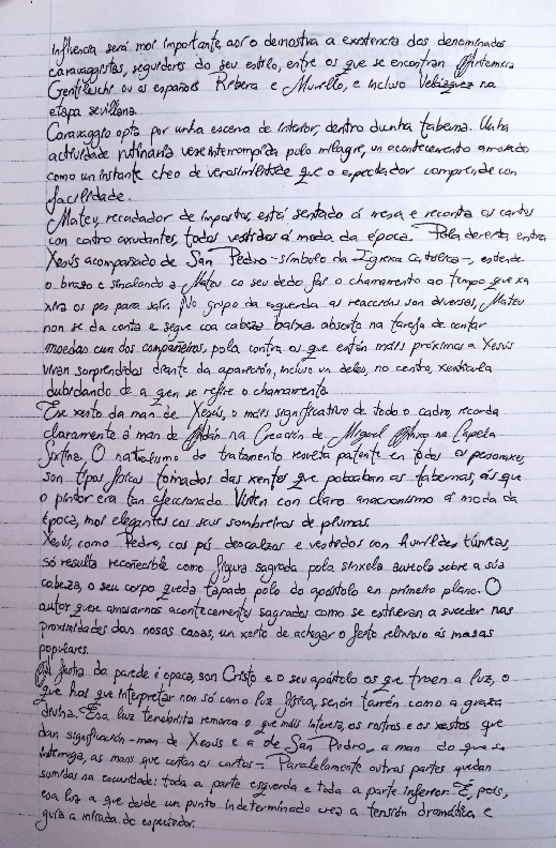 influencia será moi importante así o demostra a existencia dos denominados
caravaggistas, seguidores do seu estilo, entre os que se encontran Artemisia
Gentileschi ou os españois Ribera e Murillo, e incluso Velázquez na
etapa sevillana.
Caravaggio opta por unha escena de interior, dentro dunha taberna. Unha
actividade rutinaria vese interrompida polo milagre, un acontecemento amosado
como un instante cheo de verosimilitude que o espectador comprende con
facilidade.
Mateu, recadador de impostos, está sentado á mesa e reconta os cartos
con catro axudantes, todos vestidos á moda da época. Pola dereita entra
Xesús acompañado de San Pedro -símbolo da Igrexa Católica-, estende
o brazo e sinalando a Mateu co seu dedo fai o chamamento ao tempo que xa
xira os pes para saír. No grupo da esquerda as reaccións son diversas, Mateu
non se da conta e segue coa cabeza baixa absorto na tarefa de contar
moedas cun dos compañeiros, pola contra os que están máis próximos a Xesús
viran sorprendidos diante da aparición, incluso un deles, no centro, xesticula
dubidando de a quen se refire o chamamento.
Ese xesto da man de Xesús, o máis significativo de todo o cadro, recorda
claramente á man de Adán na Creación de Miguel Anxo na Capela
Sixtina. O naturalismo do tratamento resulta patente en todos os personaxes,
son tipos físicos tomados das xentes que poboaban as tabernas, ás que
o pintor era tan afeccionado. Visten con claro anacronismo á moda da
época, moi elegantes cos seus sombreiros de plumas.
Xesús, como Pedro, cos pés descalzos e vestidos con humildes túnicas,
só resulta recoñecible como figura sagrada pola sinxela aureola sobre a súa
cabeza, o seu corpo queda tapado polo do apóstolo en primeiro plano. O
autor quere amosarnos acontecementos sagrados como se estiveran a suceder nas
proximidades das nosas casas, un xesto de achegar o feito relixioso ás masas
populares.
A fiestra da parede é opaca, son Cristo e o seu apóstolo os que traen a luz, o
que hai que interpretar non só como luz física, senón tamén como a graza
divina. Esa luz tenebrista remarca o que máis interesa, os rostros e os xestos que
dan significación -man de Xesús e a de San Pedro, a man do que se
interroga, as mans que contan os cartos-. Paralelamente outras partes quedan
sumidas na escuridade: toda a parte esquerda e toda a parte inferior. É, pois,
esa luz a que desde un punto indeterminado crea a tensión dramática e
guía a mirada do espectador.